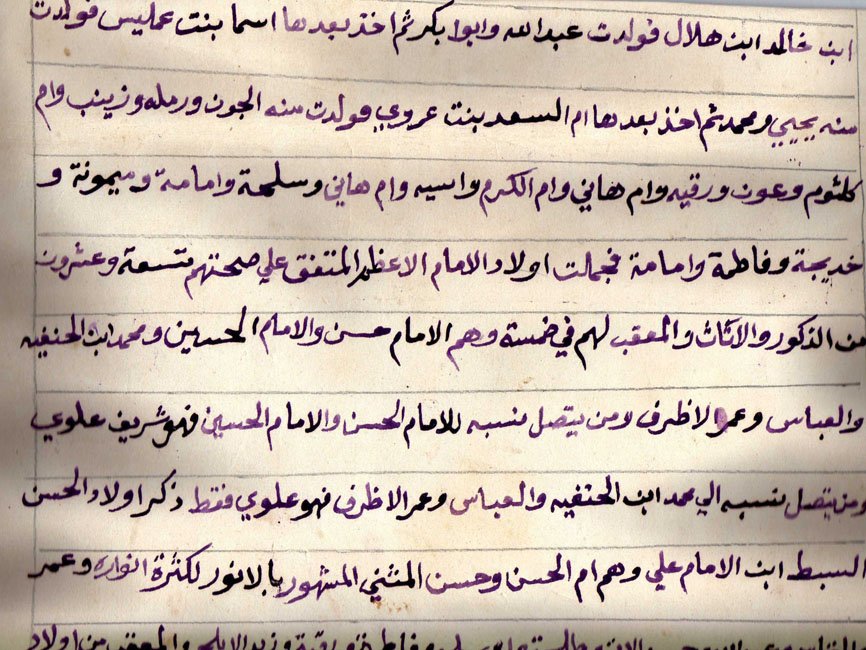 ابن خالد ابن هلال فولدت عبدالله وابوا بكر ثم اخذ بعدها اسما بنت عمليس فولدت
منه يحيي ومحمد ثم اخذ بعدها ام السعد بنت عروي فولدت منه الجون ورمله وزينب وام
كلثوم وعون ورقيه وام هاني وام الكرم واسيه وام هاني وسلمة وامامة وميمونة و
خديجة وفاطمة وامامة فجملت اولاد الامام الاعظم المتفق علي صحتهم تسعة وعشرون
من الذكور والاناث والمعقب لهم في خمسة وهم الامام حسن والامام الحسين ومحمد ابن الحنفيه
والعباس وعمر الاظرف ومن يتصل نسبه للامام الحسن والامام الحسين فهو شريف علوي
ومن يتصل نسبه الي محمد ابن الحنفيه والعباس وعمر الاظرف فهو علوي فقط ذكر اولاد الحسن
السبط ابن الامام علي وهم ام الحسن وحسن المثني المشهور بالانور لكثرة انواره وعمر
وفاطمة ورقية وزيد الابلج والمعقب من اولاد